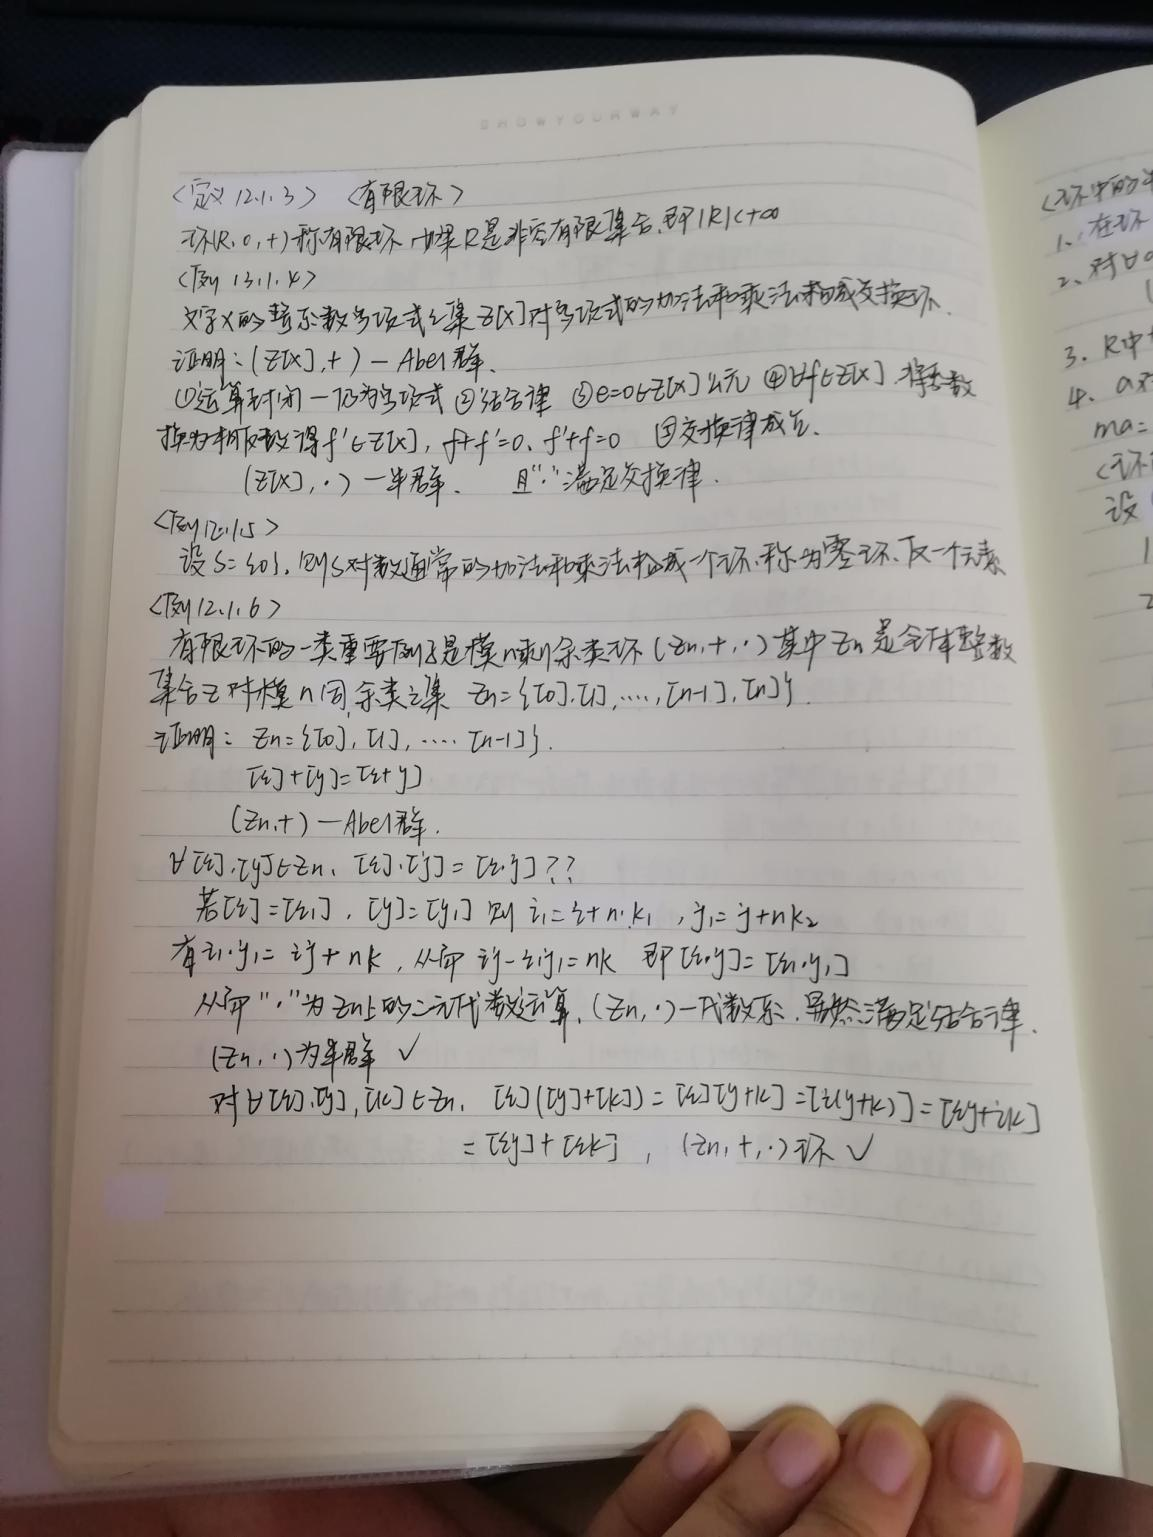 SHOWYOURWAY
<定义12.1.3> <有限环>
环(R,o,+)称有限环.如果R是非空有限集合.即|R|<+∞
<例13.1.4>
文字x的整系数多项式之集Z[x]对多项式的加法和乘法构成交换环.
证明:(Z[x],+)—Abel群.
①运算封闭—仍为多项式 ②结合律 ③e=0∈Z[x]幺元 ④∀f∈Z[x].将系数
换为相反数得f'∈Z[x], f+f'=0、f'+f=0 ⑤交换律成立.
(Z[x],·)—半群. 且"·"满足交换律.
<例12.1.5>
设S={0}.则S对数通常的加法和乘法构成一个环.称为零环.仅一个元素
<例12.1.6>
有限环的一类重要例子是模n剩余类环(Zn,+,·)其中Zn是全体整数
集合Z对模n同余类之集 Zn={[0],[1],....,[n-1],[n]}
证明: Zn={[0],[1],....[n-1]}.
[i]+[j]=[i+j]
(Zn,+)—Abel群.
∀[i].[j]∈Zn、[i].[j]=[i.j]??
若[i]=[i1],[j]=[j1]则i1=i+n.k1,j1=j+nk2
有i1.j1=ij+nk,从而ij-i1j1=nk 即[i.j]=[i1.j1]
从而"·"为Zn上的二元代数运算,(Zn,·)—代数系.显然满足结合律.
(Zn,·)为半群 ✓
对∀[i].[j],[k]∈Zn、[i]([j]+[k])=[i][j+k]=[i(j+k)]=[ij+ik]
=[ij]+[ik],(Zn,+,·)环 ✓
<环中的
1、在环
2、对∀
3、R中
4、a对
ma=
设
1
2